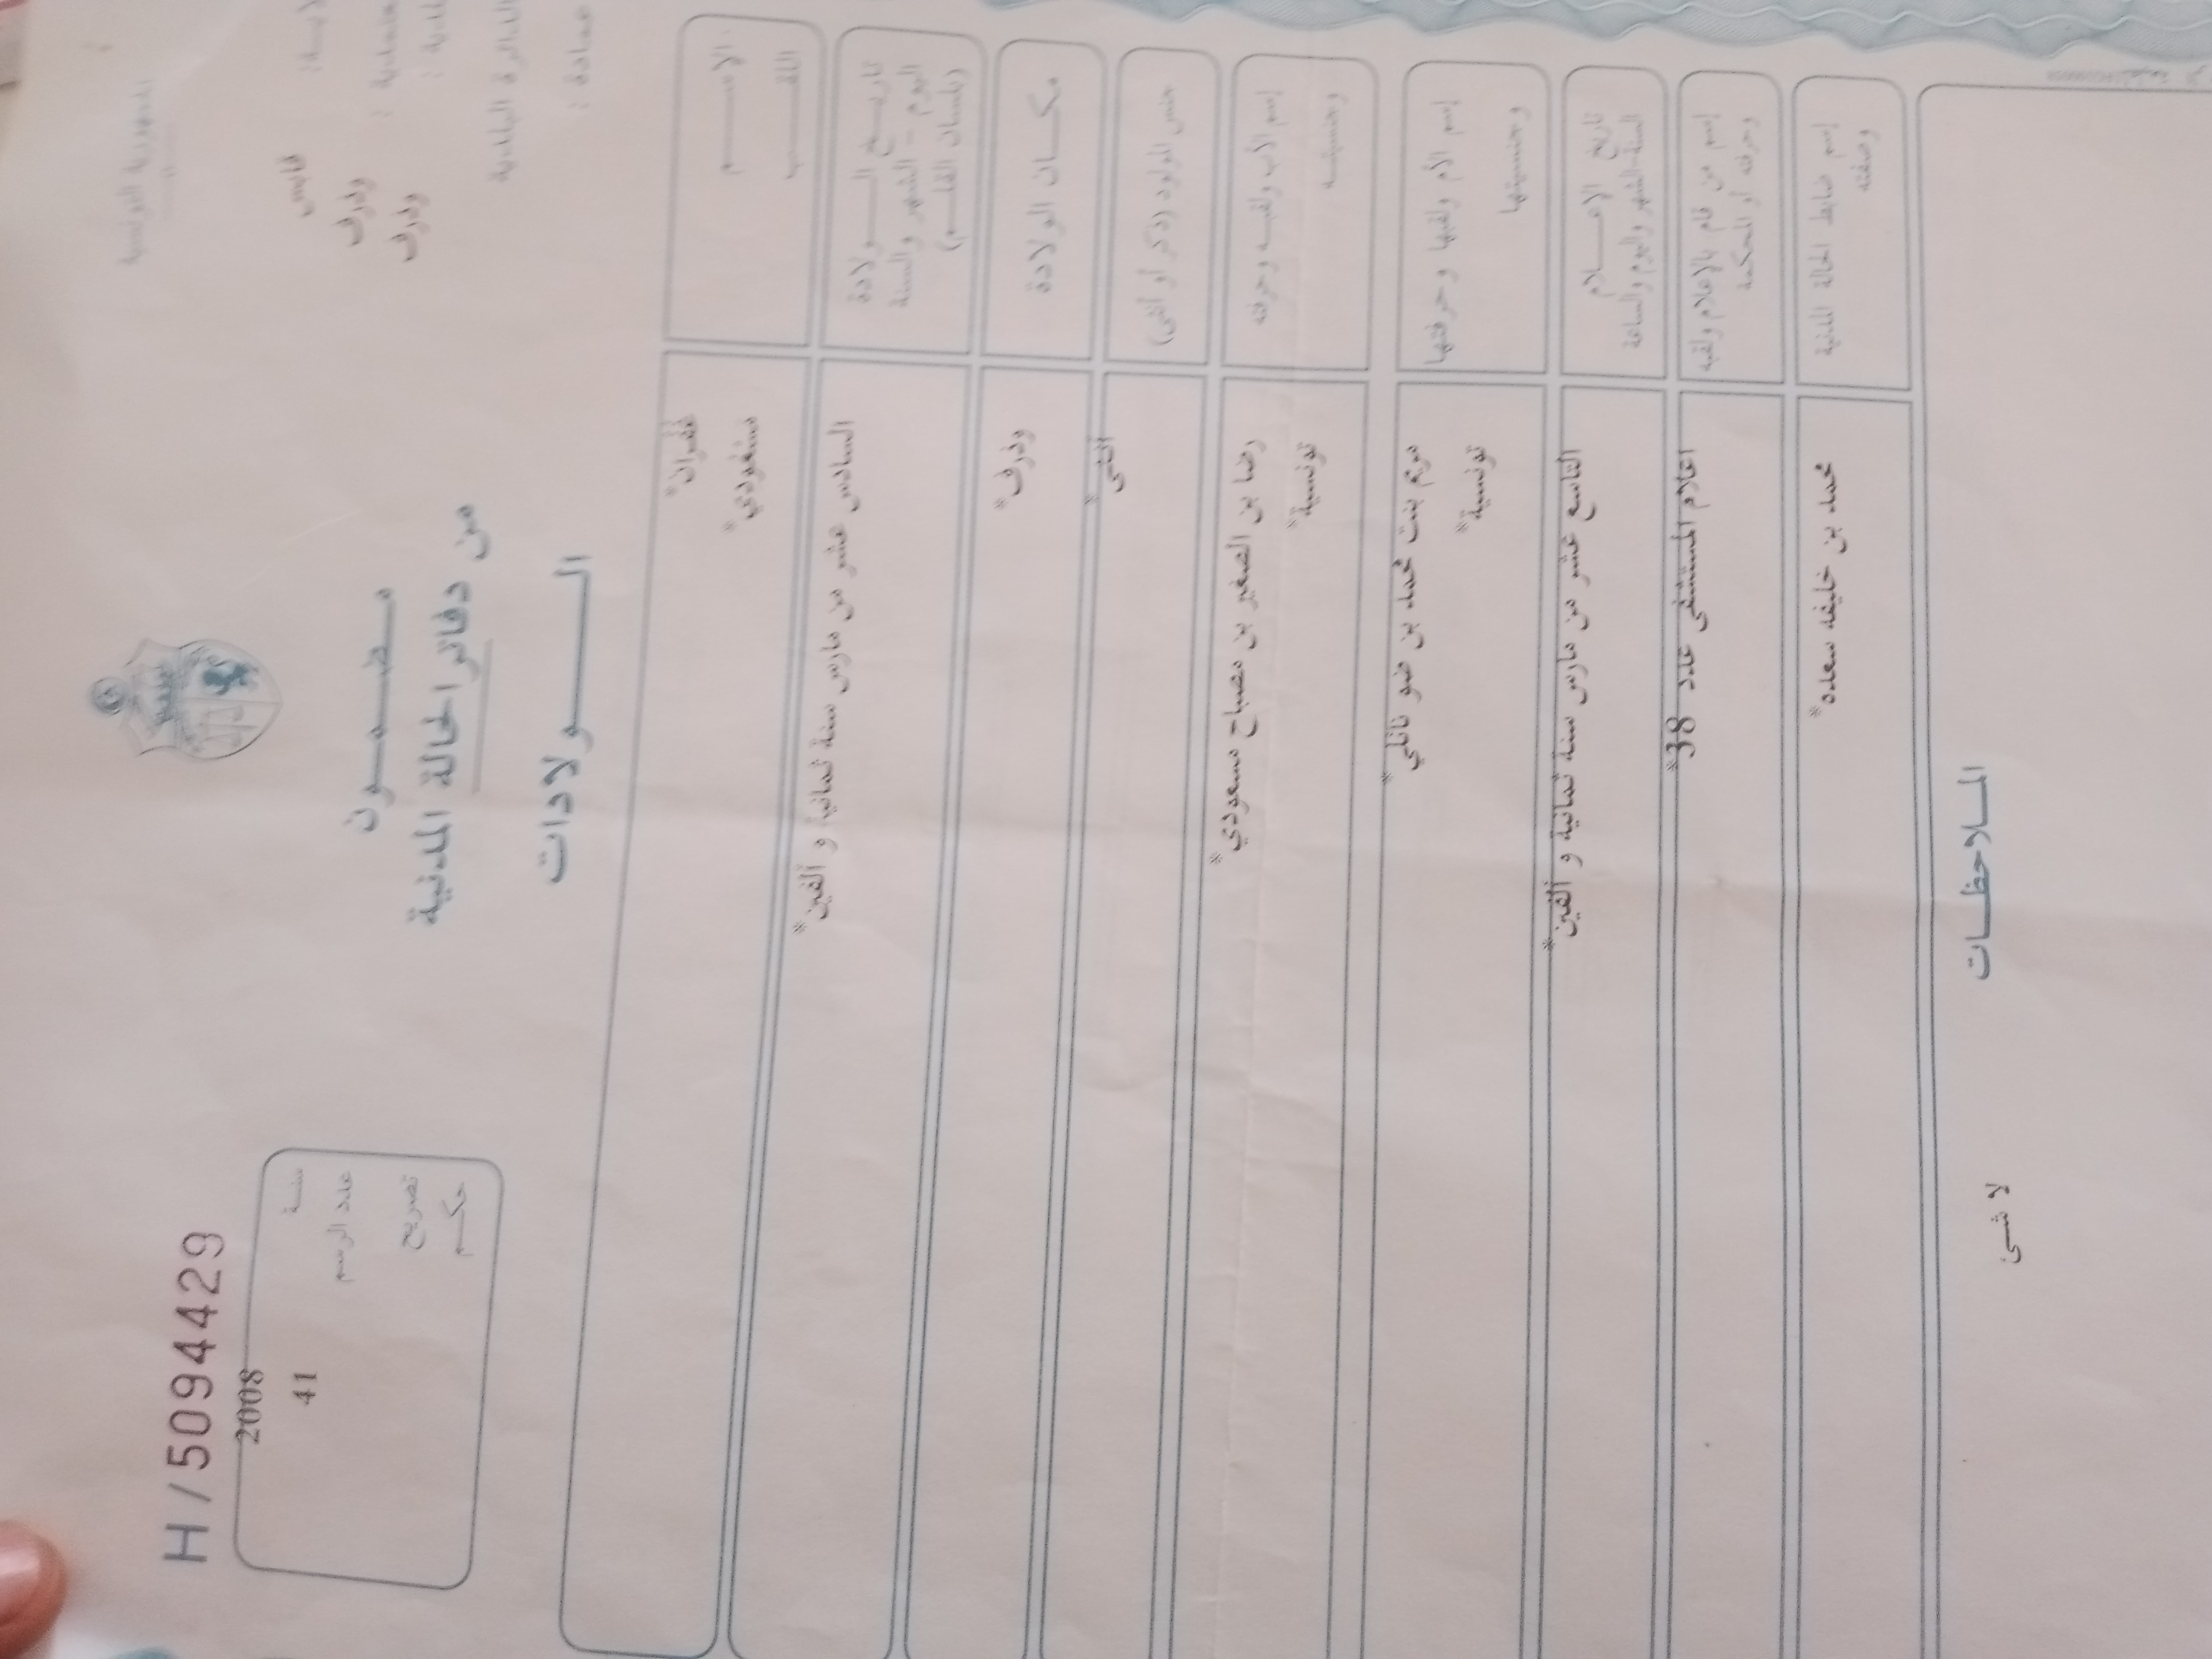 الجمهورية التونسية
H/5094429
قابس
معتمدية : وذرف
بلدية : وذرف
الدائرة البلدية
عمادة :
سنة 2008
عدد الرسم 41
تصريح
حكم
مضمون
من دفاتر الحالة المدنية
الولادات
الاسم غفران*
اللقب مسعودي*
تاريخ الولادة السادس عشر من مارس سنة ثمانية و ألفين*
اليوم - الشهر والسنة
(بلسان القلم)
مكان الولادة وذرف*
جنس المولود (ذكر أو أنثى) أنثى*
إسم الأب ولقبه وحرفته رضا بن الصغير بن مصباح مسعودي*
وجنسيته تونسية*
إسم الأم ولقبها وحرفتها مريم بنت محمد بن ضو نائلي*
وجنسيتها تونسية*
تاريخ الإعلام التاسع عشر من مارس سنة ثمانية و ألفين*
السنة-الشهر واليوم والساعة
إسم من قام بالإعلام ولقبه اعلام المستشفى عدد 38*
وحرفته أو المحكمة
إسم ضابط الحالة المدنية محمد بن خليفه سعده*
وصفته
الملاحظات
لا شىء